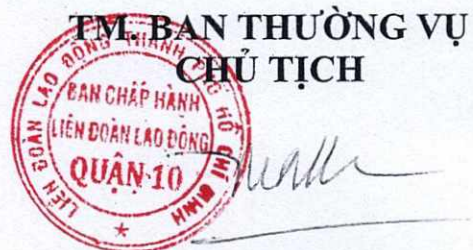 TM. BAN THƯỜNG VỤ
CHỦ TỊCH
LIÊN ĐOÀN LAO ĐỘNG THÀNH PHỐ HỒ CHÍ MINH
BAN CHẤP HÀNH
LIÊN ĐOÀN LAO ĐỘNG
QUẬN 10